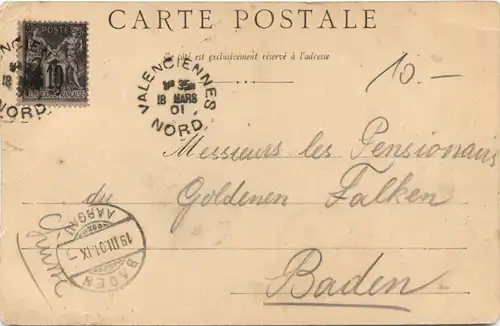 CARTE POSTALE
Ce côté est exclusivement réservé à l'adresse
10
VALENCIENNES
35
18 MARS
01
NORD
18
NORD
10 –
Messieurs les Pensionairs
du Goldenen Falken
Baden
AARGAU
19.III.01.IX
BADEN
Suisse